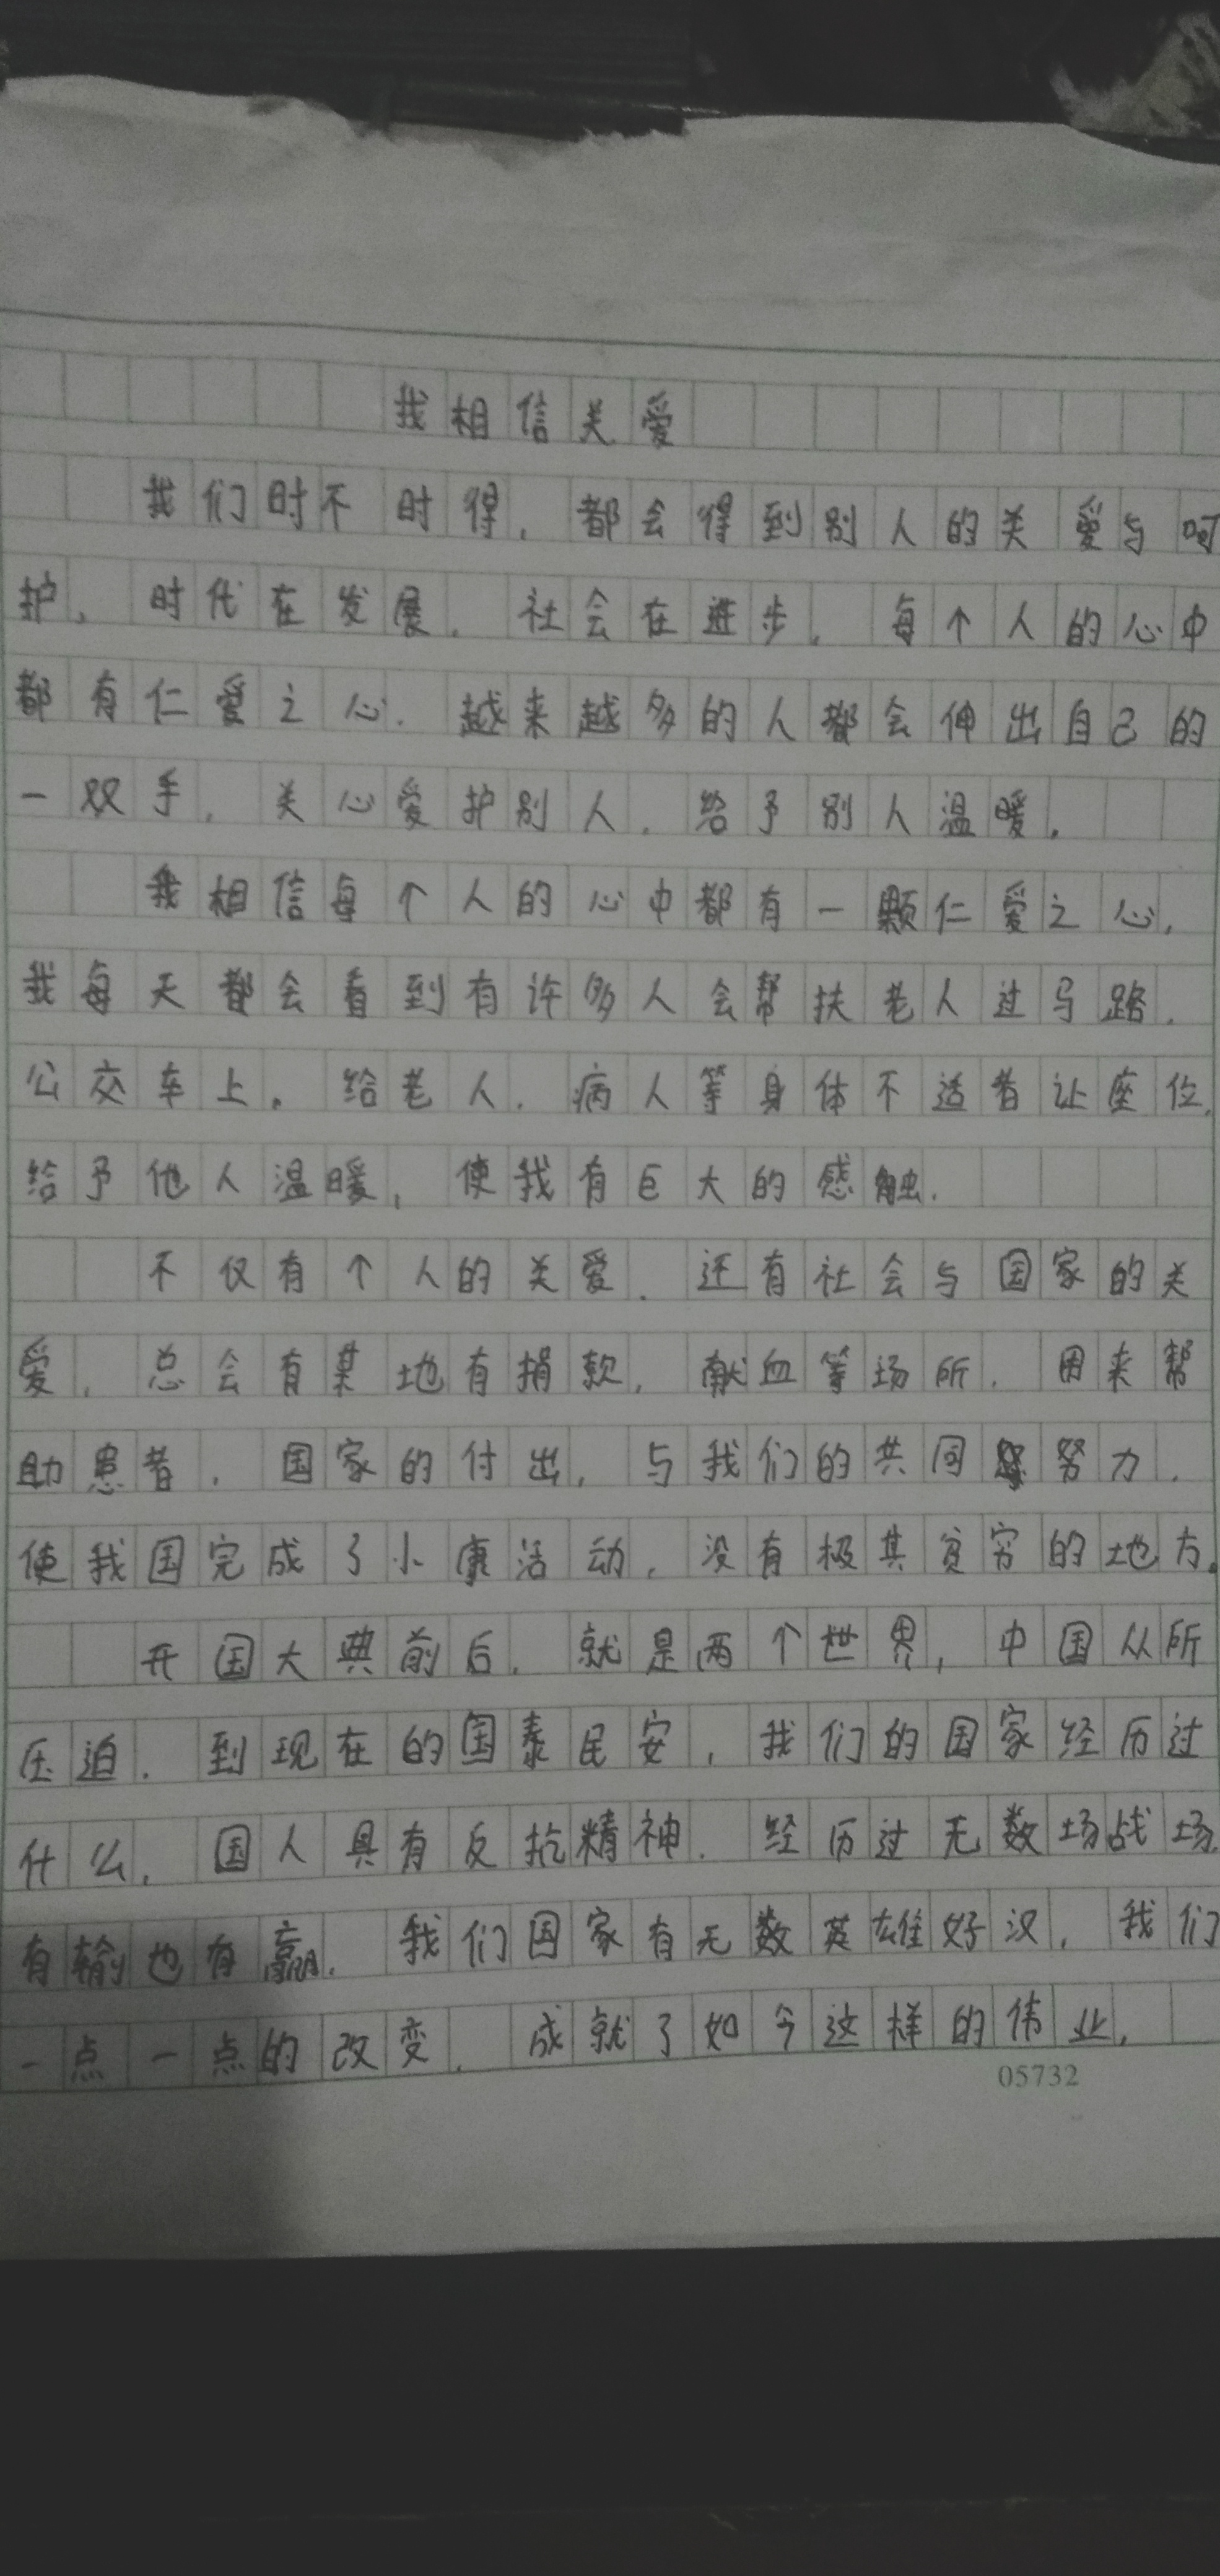 我相信关爱
我们时不时得，都会得到别人的关爱与呵
护，时代在发展，社会在进步，每个人的心中
都有仁爱之心，越来越多的人都会伸出自己的
一双手，关心爱护别人，给予别人温暖。
我相信每个人的心中都有一颗仁爱之心，
我每天都会看到有许多人会帮扶老人过马路，
公交车上，给老人，病人等身体不适者让座位，
给予他人温暖，使我有巨大的感触。
不仅有个人的关爱，还有社会与国家的关
爱，总会有某地有捐款，献血等场所，用来帮
助患者，国家的付出，与我们的共同努力，
使我国完成了小康活动，没有极其贫穷的地方。
开国大典前后，就是两个世界，中国从所
压迫，到现在的国泰民安，我们的国家经历过
什么，国人具有反抗精神，经历过无数场战场，
有输也有赢，我们国家有无数英雄好汉，我们
一点一点的改变，成就了如今这样的伟业，
05732